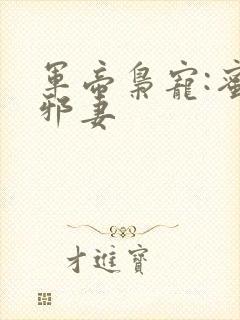 軍帝梟寵:蜜
邪妻
才進寶